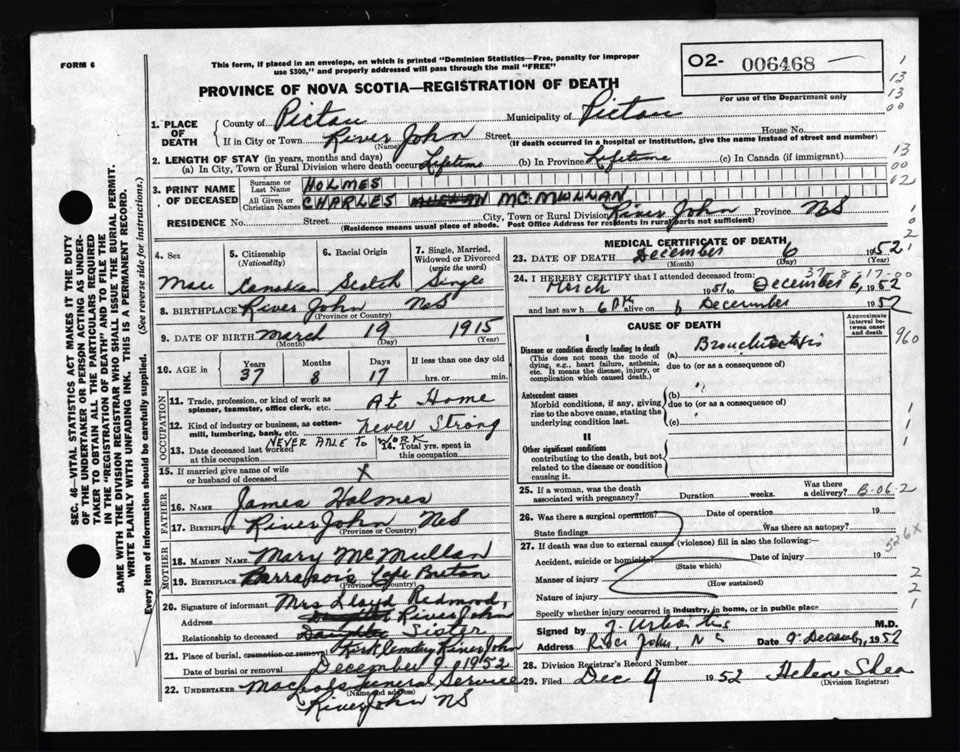 FORM 6
This form, if placed in an envelope, on which is printed "Dominion Statistics—Free, penalty for improper
use $300," and properly addressed will pass through the mail "FREE"
O2- 006468
For use of the Department only
PROVINCE OF NOVA SCOTIA—REGISTRATION OF DEATH
1. PLACE OF DEATH
County of Pictou Municipality of Pictou
If in City or Town River John Street House No.
(Name) (If death occurred in a hospital or institution, give the name instead of street and number)
2. LENGTH OF STAY (in years, months and days)
(a) In City, Town or Rural Division where death occurred Lifetime (b) In Province Lifetime (c) In Canada (if immigrant)
3. PRINT NAME OF DECEASED
Surname or Last Name HOLMES
All Given or Christian Names CHARLES MCMULLAN
RESIDENCE No. Street City, Town or Rural Division River John Province NS
(Residence means usual place of abode. Post Office Address for residents in rural parts not sufficient)
4. Sex
Male
5. Citizenship (Nationality)
Canadian
6. Racial Origin
Scotch
7. Single, Married, Widowed or Divorced (write the word)
Single
8. BIRTHPLACE River John NS
(Province or Country)
9. DATE OF BIRTH March 19 1915
(Month) (Day) (Year)
10. AGE in Years 37 Months 8 Days 17 If less than one day old hrs. or min.
OCCUPATION
11. Trade, profession, or kind of work as spinner, teamster, office clerk, etc. At Home
12. Kind of industry or business, as cotton-mill, lumbering, bank, etc. Never Strong
NEVER ABLE TO WORK
13. Date deceased last worked at this occupation
14. Total yrs. spent in this occupation
15. If married give name of wife or husband of deceased X
FATHER
16. NAME James Holmes
17. BIRTHPLACE River John NS
(Province or Country)
MOTHER
18. MAIDEN NAME Mary McMullan
19. BIRTHPLACE Cape Breton
(Province or Country)
20. Signature of informant Mrs Lloyd Redmond,
Address Daughter River John
Relationship to deceased Daughter Sister
21. Place of burial, cremation or removal River John
Date of burial or removal December 9, 1952
22. UNDERTAKER MacLeods Funeral Service
(Name and address)
River John NS
MEDICAL CERTIFICATE OF DEATH
23. DATE OF DEATH December 6 1952
(Month) (Day)
37-8-17-00
24. I HEREBY CERTIFY that I attended deceased from:
March 1951 to December 6, 1952
and last saw h alive on 6 December 1952
CAUSE OF DEATH
Approximate interval between onset and death
I
Disease or condition directly leading to death
(This does not mean the mode of dying, e.g., heart failure, asthenia, etc. It means the disease, injury, or complication which caused death.)
(a) Bronchiectasis
due to (or as a consequence of)
Antecedent causes
Morbid conditions, if any, giving rise to the above cause, stating the underlying condition last.
due to (or as a consequence of)
(c)
II
Other significant conditions
contributing to the death, but not related to the disease or condition causing it.
25. If a woman, was the death associated with pregnancy? Duration weeks. Was there a delivery? B-06-2
26. Was there a surgical operation? Date of operation 19
State findings Was there an autopsy?
27. If death was due to external causes (violence) fill in also the following:
Accident, suicide or homicide? Date of injury 19
(State which)
Manner of injury
(How sustained)
Nature of injury
Specify whether injury occurred in industry, in home, or in public place
Signed by M.D.
Address River John, N.S. Date 9 December, 1952
28. Division Registrar's Record Number
29. Filed Dec 9 1952 Helen Shea
(Division Registrar)
SEC. 46 VITAL STATISTICS ACT MAKES IT THE DUTY
OF THE UNDERTAKER OR PERSON ACTING AS UNDER-
TAKER TO OBTAIN ALL THE PARTICULARS REQUIRED
IN THE "REGISTRATION OF DEATH" AND TO FILE THE
SAME WITH THE DIVISION REGISTRAR WHO SHALL ISSUE THE BURIAL PERMIT.
WRITE PLAINLY WITH UNFADING INK. THIS IS A PERMANENT RECORD.
Every item of information should be carefully supplied. (See reverse side for instructions.)
1
13
13
00
13
00
02
1
0
2
1
960
1
1
526X
2
2
1